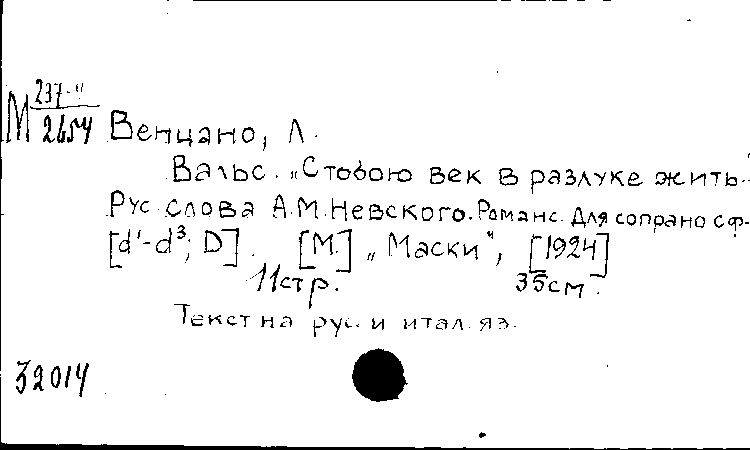 М 237-11
2654
Венцано, Л.
Вальс. „Стобою век в разлуке жить.
Рус слова А.М.Невского. Романс. Для сопрано с ф-
[d¹-d³; D]. [М.] „Маски", [1924]
11стр. 35см.
Текст на рус. и итал. яз.
32014